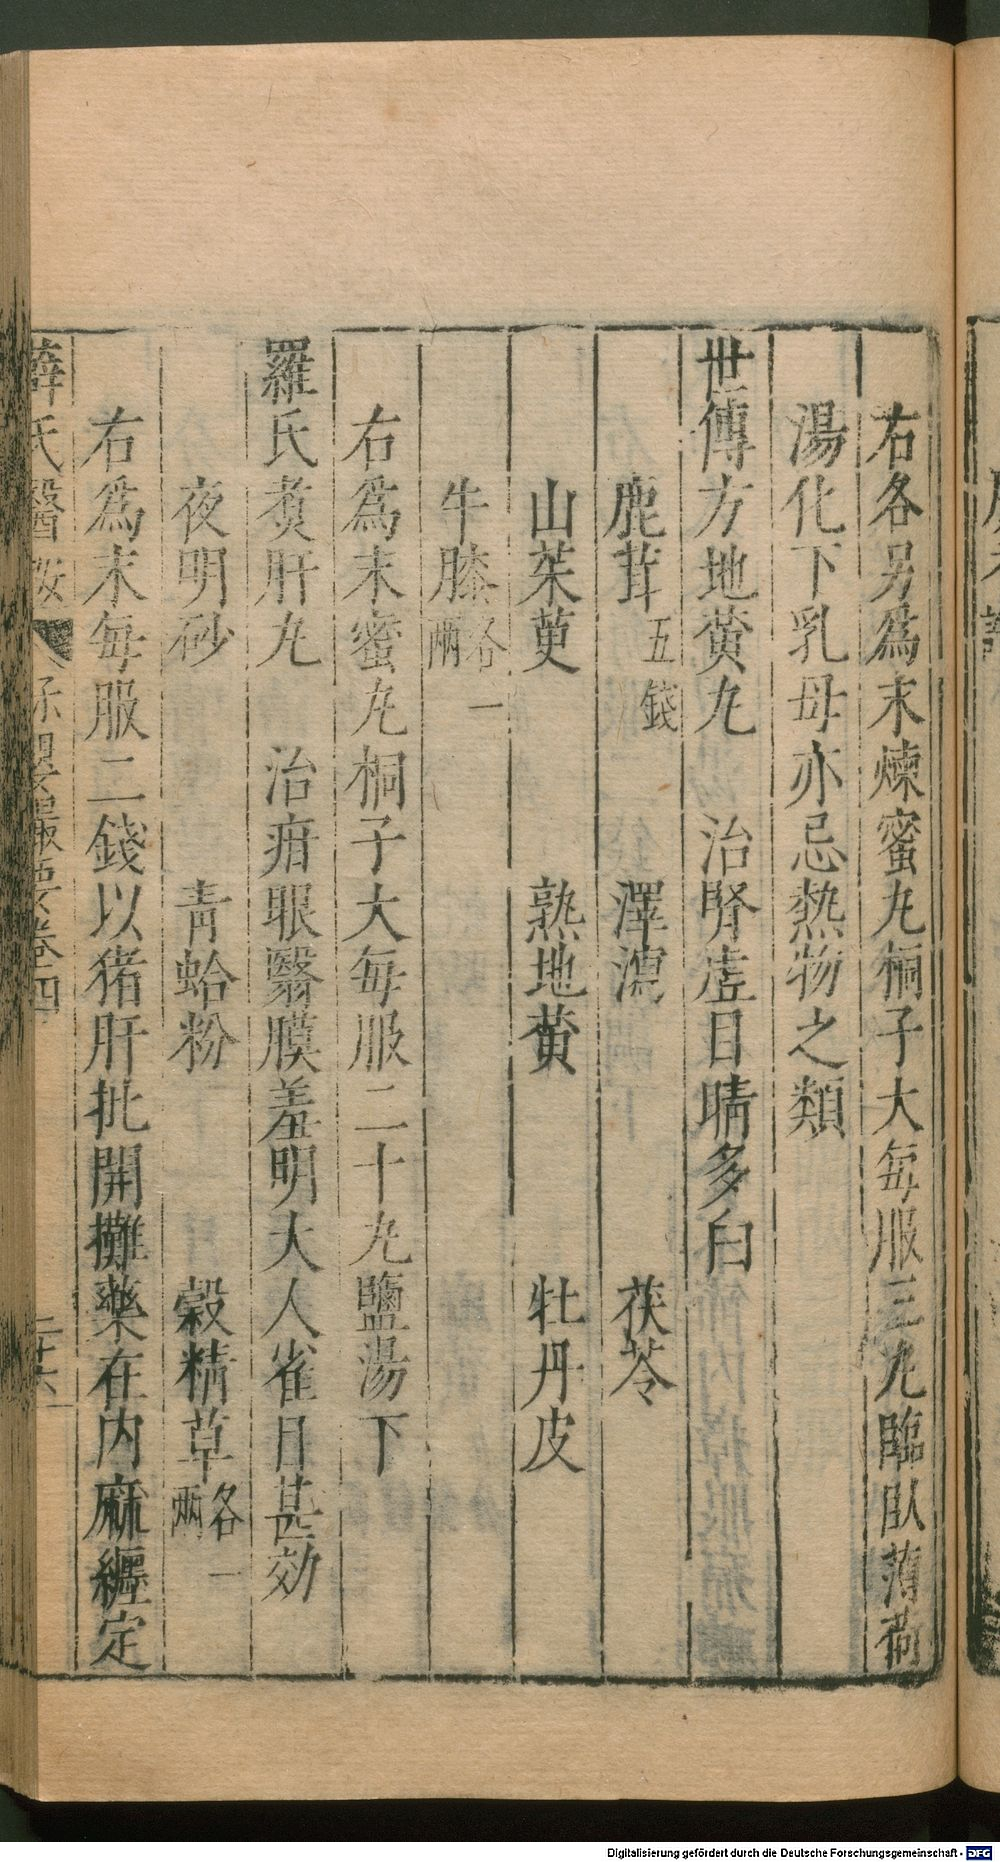 右各另為末煉蜜丸桐子大每服三丸臨臥薄荷
湯化下乳母亦忌熱物之類
世傳方地黃丸　治腎虛目睛多白
鹿茸五錢　澤瀉　茯苓
山茱萸　熟地黃　牡丹皮
牛膝各一兩
右為末蜜丸桐子大每服二十丸鹽湯下
羅氏煮肝丸　治疳眼翳膜羞明大人雀目甚効
夜明砂　青蛤粉　穀精草各一兩
右為末每服二錢以猪肝批開攤藥在內麻纒定
薛氏醫按　保嬰撮要卷四　二十六
Digitalisierung gefördert durch die Deutsche Forschungsgemeinschaft - DFG